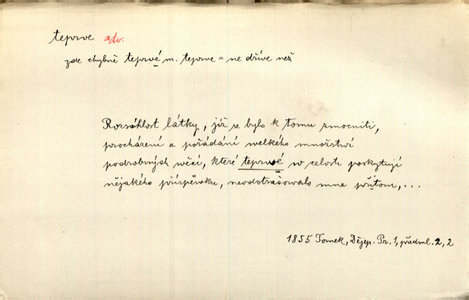 teprve adv.
zde chybně teprvé m. teprve = ne dříve než
Rozsáhlost látky, již se bylo k tomu zmocniti,
procházení a pořádání welkého množství
podrobných wěcí, které teprvé w celosti poskytují
nějakého příspěwku, neodstrašowalo mne přitom, ...
1855 Tomek, Dějep. Pr. 1, předml. 2, 2